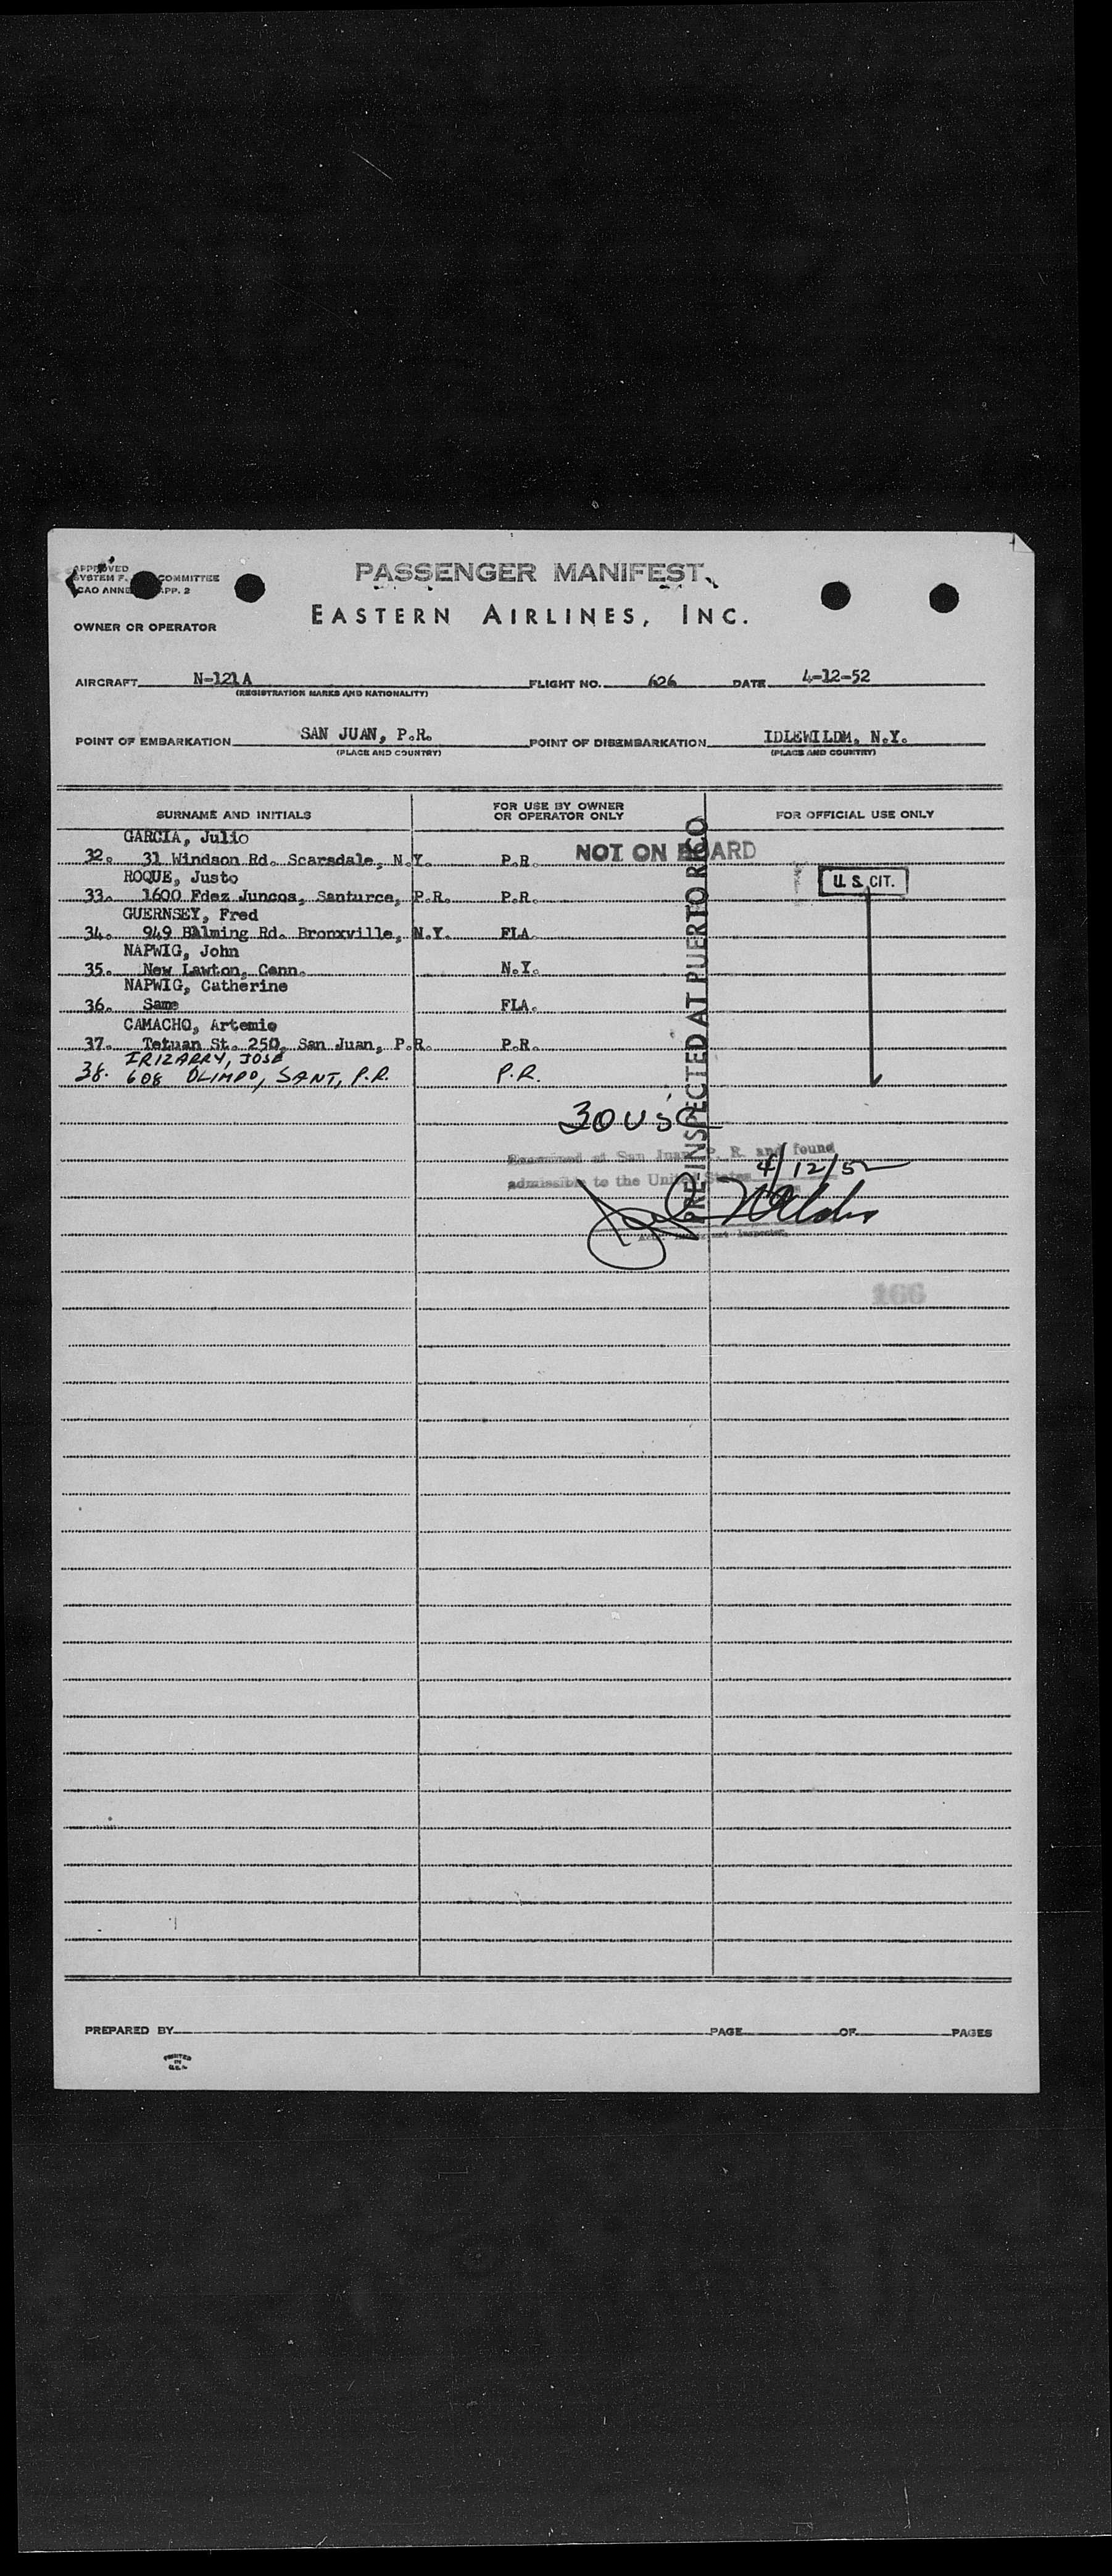 APPROVED
SYSTEM F. COMMITTEE
ICAO ANNE APP. 2
PASSENGER MANIFEST
EASTERN AIRLINES, INC.
OWNER OR OPERATOR
AIRCRAFT N-121A FLIGHT NO. 626 DATE 4-12-52
(REGISTRATION MARKS AND NATIONALITY)
POINT OF EMBARKATION SAN JUAN, P.R. POINT OF DISEMBARKATION IDLEWILDM, N.Y.
(PLACE AND COUNTRY) (PLACE AND COUNTRY)
SURNAME AND INITIALS FOR USE BY OWNER OR OPERATOR ONLY FOR OFFICIAL USE ONLY
GARCIA, Julio
32. 31 Windson Rd. Scarsdale, N.Y. P.R. NOT ON BOARD
ROQUE, Justo
33. 1600 Fdez Juncos, Santurce, P.R. P.R. U. S. CIT.
GUERNSEY, Fred
34. 949 Rd. Bronxville, N.Y. FLA.
NAPWIG, John
35. New Lawton, Conn. N.Y.
NAPWIG, Catherine
36. Same FLA.
CAMACHO, Artemio
37. Tetuan St. 250, San Juan, P.R. P.R.
IRIZARRY, JOSE
38. 608 OLIMPO, SANT, P.R. P.R.
PRE INSPECTED AT PUERTO RICO
30 USC
Examined at San Juan, P. R. and found
admissible to the United States 4/12/52
Inspector
166
PREPARED BY PAGE OF PAGES
PRINTED
IN
U.S.A.